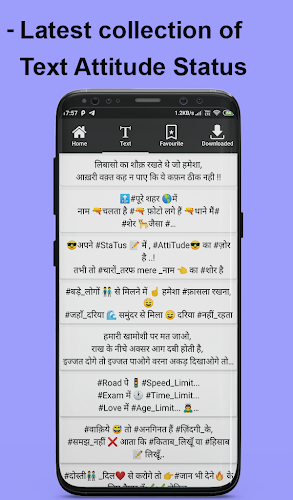 - Latest collection of
Text Attitude Status
7:57
1.2KB/s
Home
Text
Favourite
Downloaded
लिबासो का शौक़ रखते थे जो हमेशा,
आख़री वक़्त कह न पाए कि ये कफ़न ठीक नही !!
#पूरे शहर 🌍में
नाम 🔫चलता है #🔫 फ़ोटो लगे हैं 🔫थाने में#
#शेर 🐆जैसा #...
😎अपने #StaTus 📝 में , #AttiTude😎 का #ज़ोर
है ..!
तभी तो #चारों_तरफ mere _नाम 👈 का #शोर है
#बड़े_लोगों 👬 से मिलने में ☝ हमेशा #फ़ासला रखना,
😄
#जहाँ_दरिया 🌊 समुंदर से मिला 😄 दरिया #नहीं_रहता
हमारी खामोशी पर मत जाओ,
राख के नीचे अक्सर आग दबी होती है,
इज्जत दोगे तो इज्जत पाओगे वरना अकड़ दिखाओगे तो...
#Road पे 🚦#Speed_Limit...
#Exam में ⌚ #Time_Limit...
#Love में #Age_Limit... 🙇
#वाक़िये 😅 तो #अनगिनत हैं #ज़िंदगी_के,
#समझ_नहीं ❌ आता कि #किताब_लिखूँ या #हिसाब
📝 लिखूँ..
#दोस्ती👬 _दिल❤ से करोगे तो 👉#जान भी देंगे🔥 के